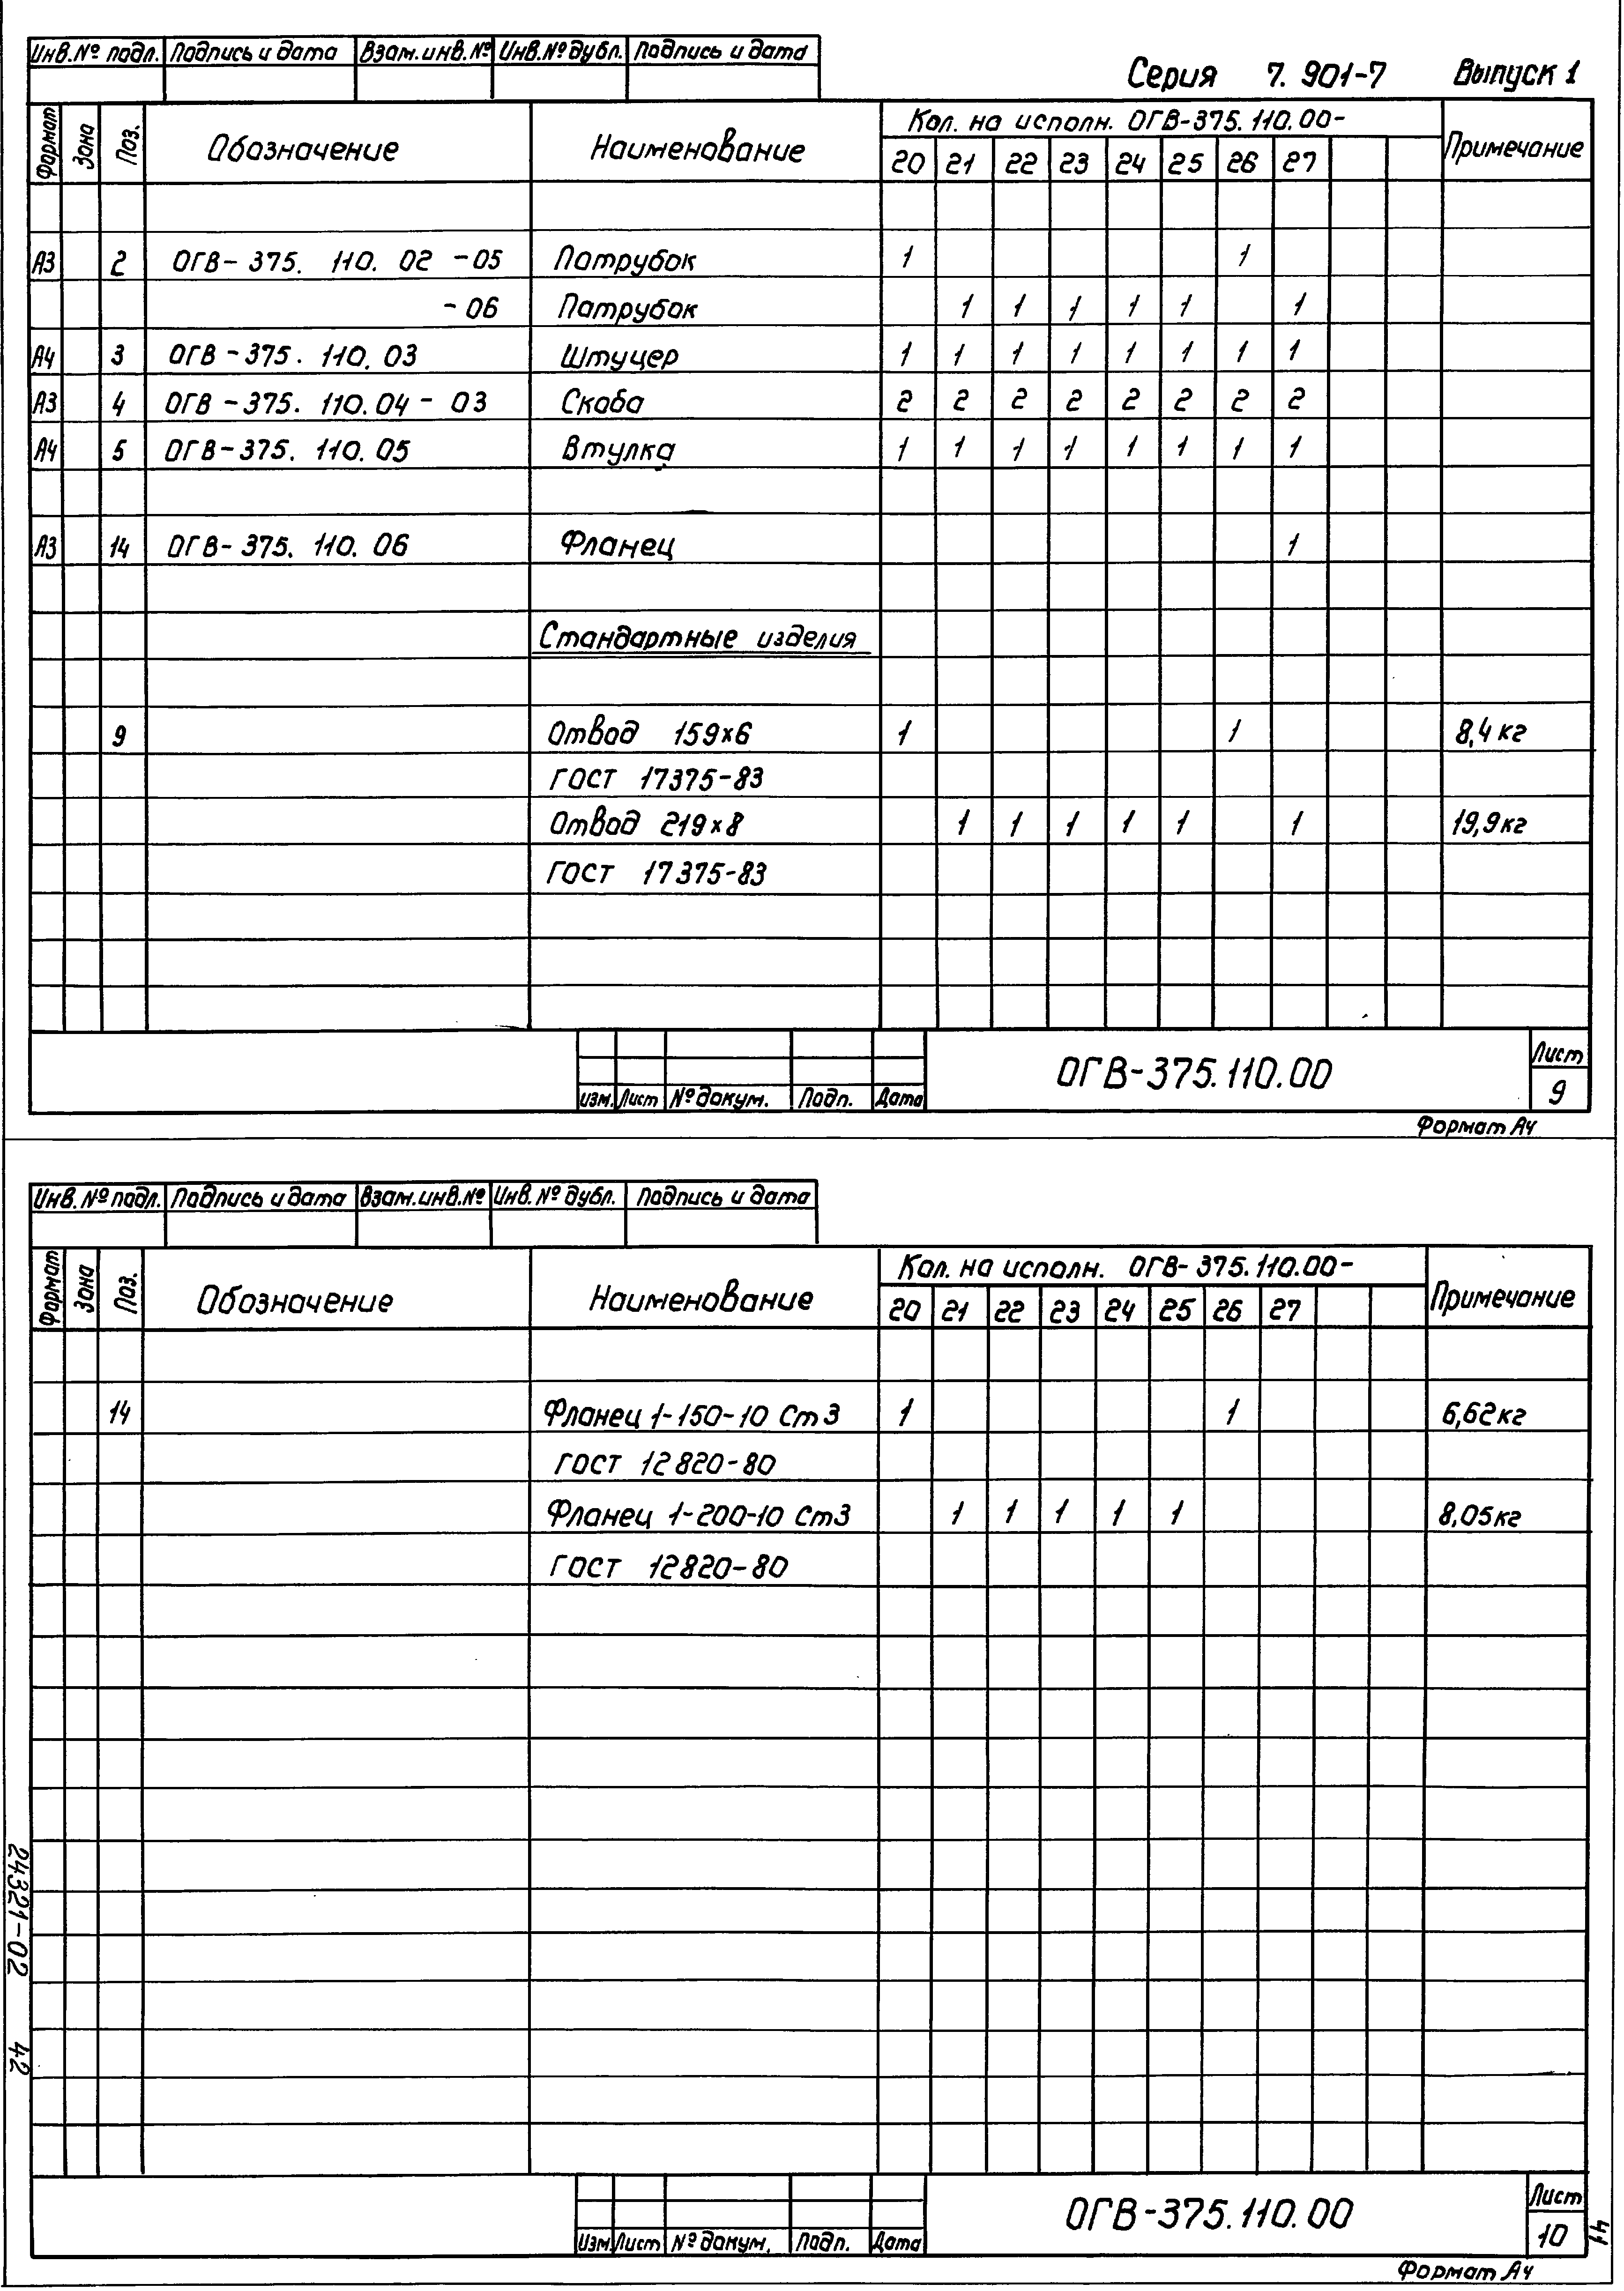 Инв.№ подл. Подпись и дата Взам.инв.№ Инв.№ дубл. Подпись и дата
Серия 7.901-7 Выпуск 1
Формат Зона Поз. Обозначение Наименование Кол. на исполн. ОГВ-375.110.00- Примечание
20 21 22 23 24 25 26 27
А3 2 ОГВ-375. 110. 02 -05 Патрубок 1 1
-06 Патрубок 1 1 1 1 1 1
А4 3 ОГВ-375. 110. 03 Штуцер 1 1 1 1 1 1 1 1
А3 4 ОГВ-375. 110. 04-03 Скоба 2 2 2 2 2 2 2 2
А4 5 ОГВ-375. 110. 05 Втулка 1 1 1 1 1 1 1 1
А3 14 ОГВ-375. 110. 06 Фланец 1
Стандартные изделия
9 Отвод 159х6 1 1 8,4 кг
ГОСТ 17375-83
Отвод 219х8 1 1 1 1 1 1 19,9кг
ГОСТ 17375-83
ОГВ-375.110.00 Лист
9
изм. Лист № докум. Подп. Дата
Формат А4
Инв. № подл. Подпись и дата Взам.инв.№ Инв. № дубл. Подпись и дата
Формат Зона Поз. Обозначение Наименование Кол. на исполн. ОГВ-375.110.00- Примечание
20 21 22 23 24 25 26 27
14 Фланец 1-150-10 Ст3 1 1 6,62кг
ГОСТ 12820-80
Фланец 1-200-10 Ст3 1 1 1 1 1 8,05кг
ГОСТ 12820-80
ОГВ-375.110.00 Лист
10
Изм Лист № докум. Подп. Дата
Формат А4
24321-02 42
41